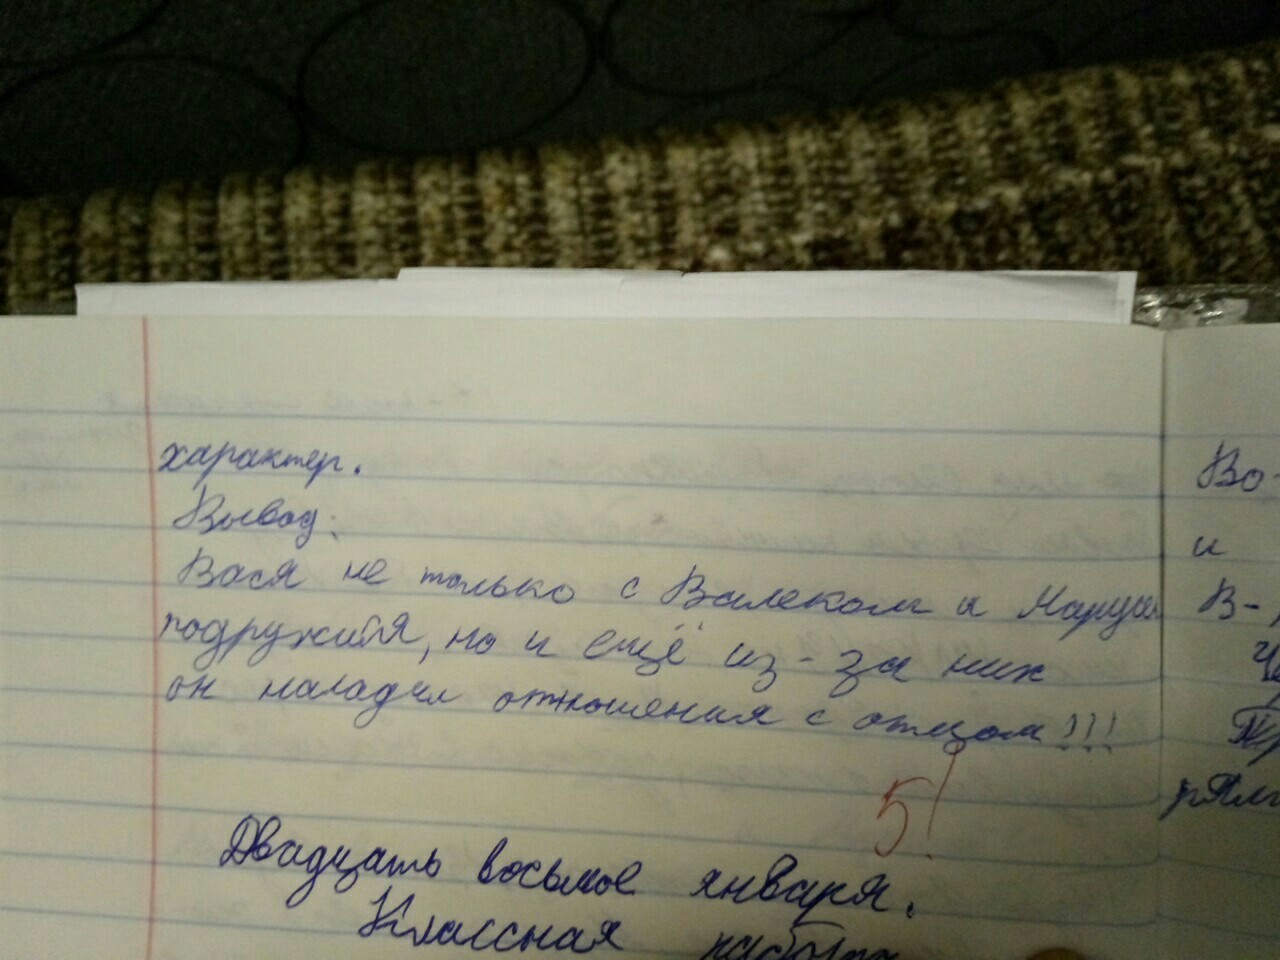 характер.
Вывод:
Вася не только с Валеком и Марусей
подружился, но и ещё из-за них
он наладил отношения с отцом!!!
5!
Двадцать восьмое января.
Классная работа
Во-
и
В-